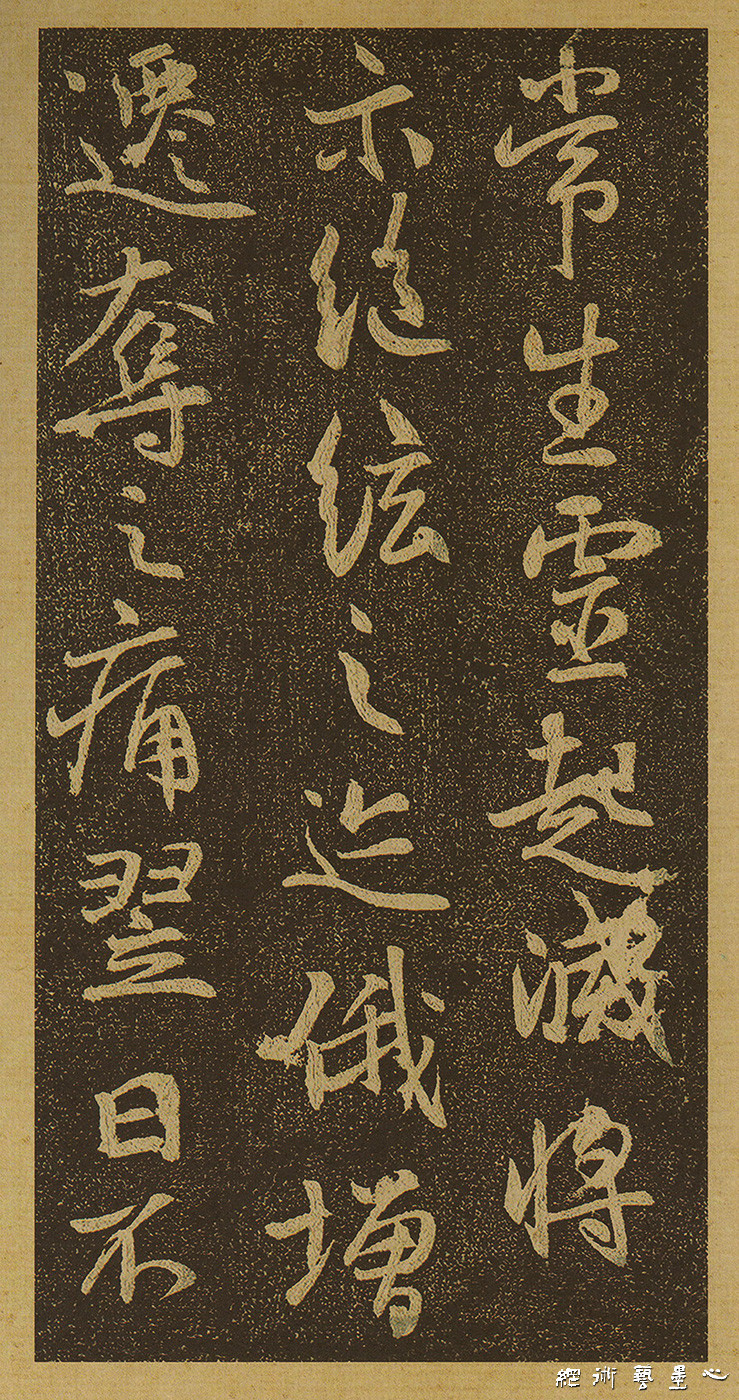 常生靈起滅將
示絕絃之迹俄增
遷奪之痛翌日不
心墨藝術網